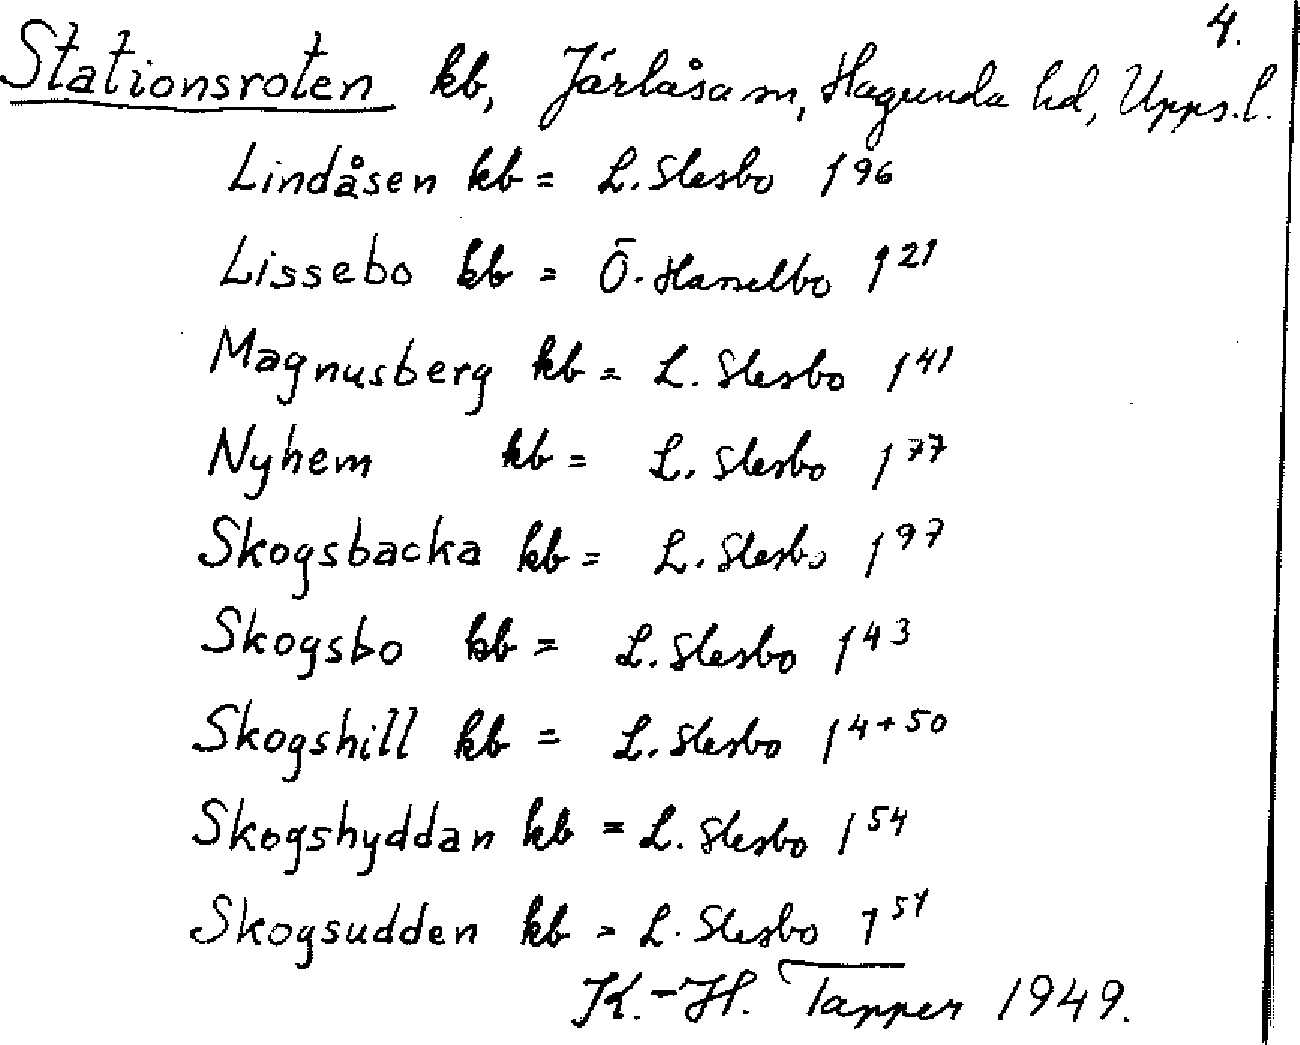 4.
Stationsroten kb, Järlåsa sn, Hagunda hd, Upps. l.
Lindåsen kb = L. Slesbo 1⁹⁶
Lissebo kb = Ö. Hanelbo 1²¹
Magnusberg kb = L. Slesbo 1⁴¹
Nyhem kb = L. Slesbo 1⁷⁷
Skogsbacka kb = L. Slesbo 1⁹⁷
Skogsbo kb = L. Slesbo 1⁴³
Skogshill kb = L. Slesbo 1⁴⁺⁵⁰
Skogshyddan kb = L. Slesbo 1⁵⁴
Skogsudden kb = L. Slesbo 1⁵¹
K.-H. Tapper 1949.